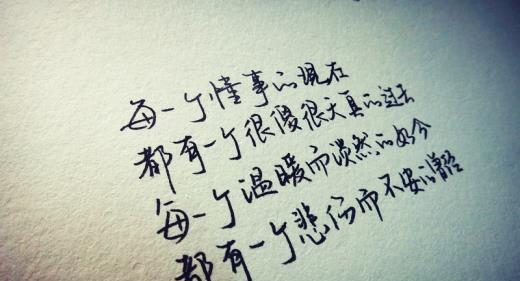 每一个懂事的现在
都有一个很傻很天真的过去
每一个温暖而淡然的如今
都有一个悲伤而不安的曾经